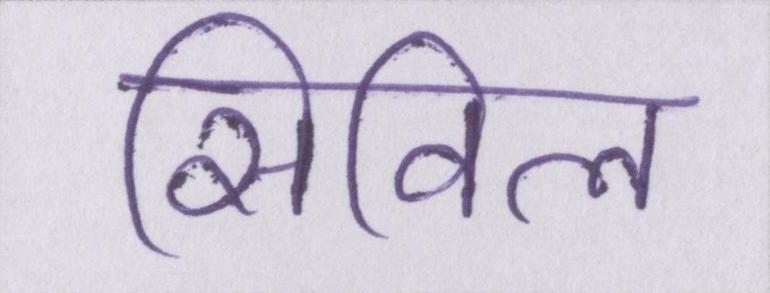 सिविल